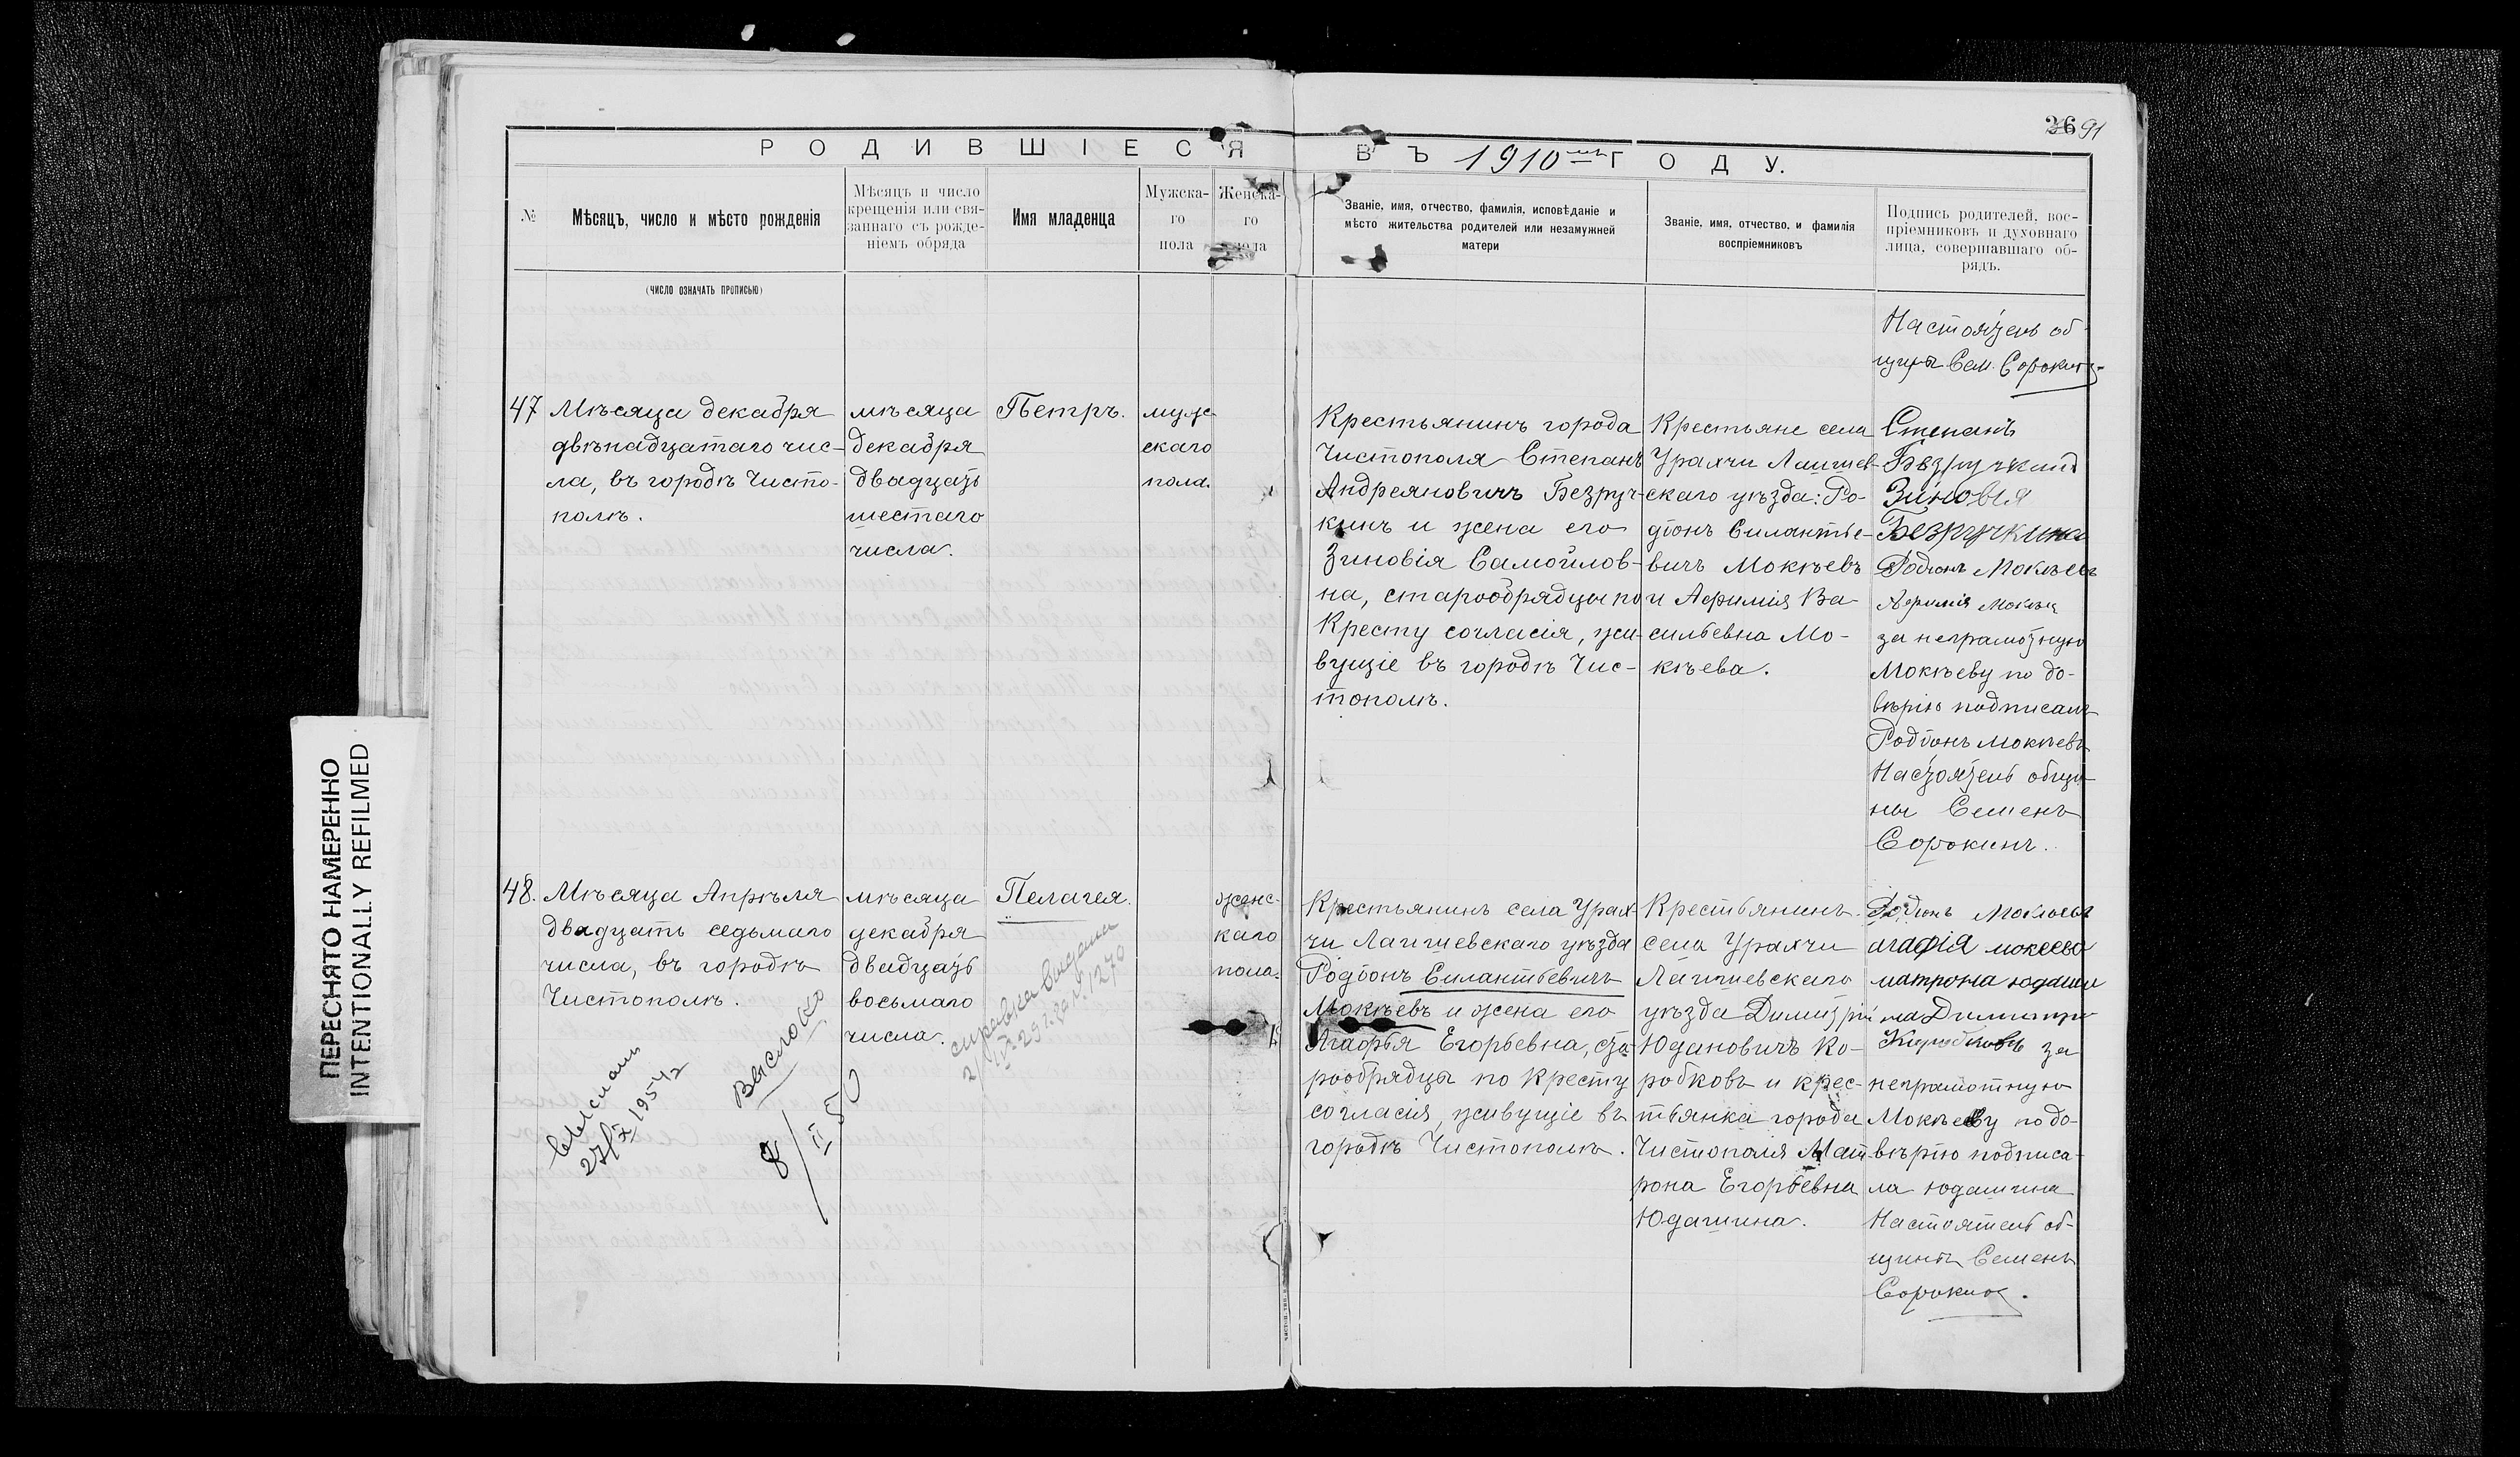 26 91
РОДИВШІЕСЯ ВЪ 1910мъ ГОДУ.
№
Мѣсяцъ, число и мѣсто рожденія
Мѣсяцъ и число
крещенія или свя-
заннаго съ рожде-
ніемъ обряда
Имя младенца
Мужска-
го
пола
Женска-
го
пола
Званіе, имя, отчество, фамилія, исповѣданіе и
мѣсто жительства родителей или незамужней
матери
Званіе, имя, отчество, и фамилія
воспріемниковъ
Подпись родителей, вос-
пріемниковъ и духовнаго
лица, совершавшаго об-
рядъ.
(ЧИСЛО ОЗНАЧАТЬ ПРОПИСЬЮ)
Настоятель об-
щины Сем. Сорокинъ
47
Мѣсяца декабря
двѣнадцатаго чис-
ла, въ городѣ Чисто-
полѣ.
мѣсяца
декабря
двадцать
шестаго
числа.
Петръ.
муж-
скаго
пола.
Крестьянинъ города
Чистополя Степанъ
Андреяновичъ Безруч-
кинъ и жена его
Зиновія Самойлов-
на, старообрядцы по
Кресту согласія, жи-
вущіе въ городѣ Чис-
тополѣ.
Крестьяне села
Урахчи Лаишев-
скаго уѣзда: Ро-
діонъ Силантье-
вичъ Мокѣевъ
и Афимія Ва-
сильевна Мо-
кѣева.
Степанъ
Безручкинъ
Зиновія
Безручкина
Родіонъ Мокѣевъ
Афимія
за неграмотную
Мокѣеву по до-
вѣрію подписалъ
Родіонъ Мокѣевъ
Настоятель общи-
ны Семенъ
Сорокинъ.
48.
Мѣсяца Апрѣля
двадцать седьмаго
числа, въ городѣ
Чистополѣ.
мѣсяца
декабря
двадцать
восьмаго
числа.
Пелагея.
женс-
каго
пола.
Крестьянинъ села Урах-
чи Лаишевскаго уѣзда
Родіонъ Силантьевичъ
Мокѣевъ и жена его
Агафья Егорьевна, ста-
рообрядцы по Кресту
согласія, живущіе въ
городѣ Чистополѣ.
Крестьянинъ
села Урахчи
Лаишевскаго
уѣзда Димитрій
Юдановичъ Ко-
робковъ и крес-
тьянка города
Чистополя Мат-
рона Егорьевна
Юдашина.
Родіонъ Мокѣевъ
агафія мокеева
матрона юдаши
на Димитри
Коробковъ за
неграмотную
Мокѣеву по до-
вѣрію подписа-
ла юдашина
Настоятель об-
щины Семенъ
Сорокинъ.
27/IX 1954г
Выслако
8/II 50
справка выдана
ПЕРЕСНЯТО НАМЕРЕННО
INTENTIONALLY REFILMED